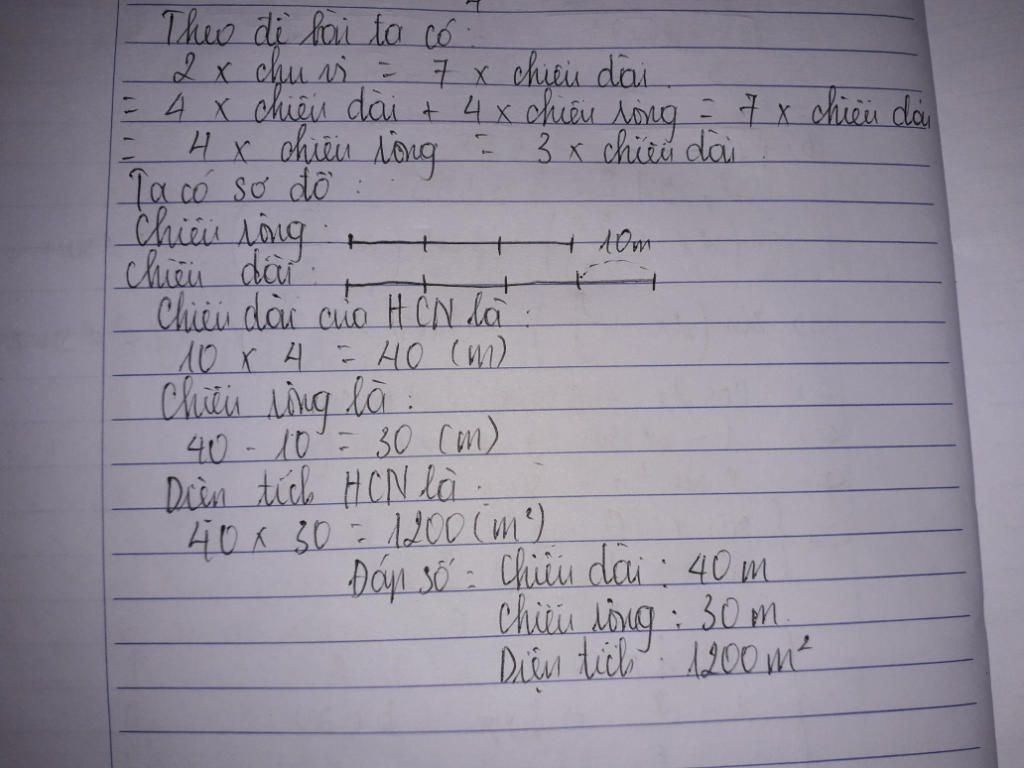 Theo đề bài ta có:
2 x chu vi = 7 x chiều dài
= 4 x chiều dài + 4 x chiều rộng = 7 x chiều dài
= 4 x chiều rộng = 3 x chiều dài
Ta có sơ đồ:
Chiều rộng: 10m
Chiều dài:
Chiều dài của HCN là:
10 x 4 = 40 (m)
Chiều rộng là:
40 - 10 = 30 (m)
Diện tích HCN là:
40 x 30 = 1200 (m²)
Đáp số = Chiều dài: 40 m
Chiều rộng: 30 m.
Diện tích: 1200 m²